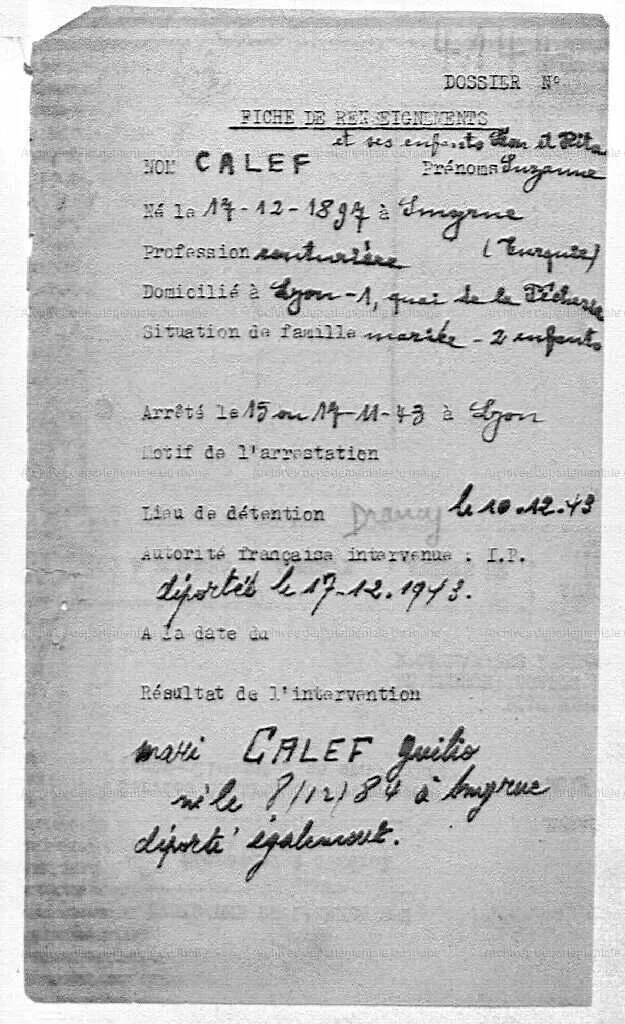 DOSSIER N°
FICHE DE RENSEIGNEMENTS
et ses enfants et Rita
NOM CALEF Prénoms Suzanne
Né le 17-12-1897 à Smyrne
Profession couturière (Turquie)
Domicilié à Lyon-1, quai de la Pêcherie
Situation de famille mariée - 2 enfants
Arrêté le 15 ou 17-11-43 à Lyon
Motif de l'arrestation
Lieu de détention Drancy le 10.12.43
Autorité française intervenue : I.P.
déportés le 17-12.1943.
A la date du
Résultat de l'intervention
mari CALEF Guilio
né le 8/12/84 à Smyrne
déporté également.